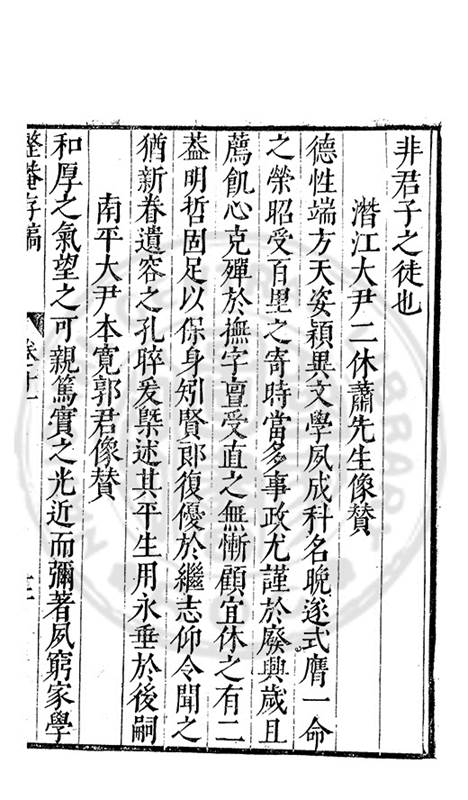 非君子之徒也
潛江大尹二休蕭先生像贊
德性端方天姿穎異文學夙成科名晚遂式膺一命
之榮昭受百里之寄時當多事政尤謹於廢興歲且
薦飢心克殫於撫字亶受直之無慚顧宜休之有二
葢明哲固足以保身矧賢郎復優於繼志仰令聞之
猶新眷遺容之孔晬爰槩述其平生用永垂於後嗣
南平大尹本寬郭君像贊
和厚之氣望之可親篤實之光近而彌著夙窮家學
整菴存稿 卷十一